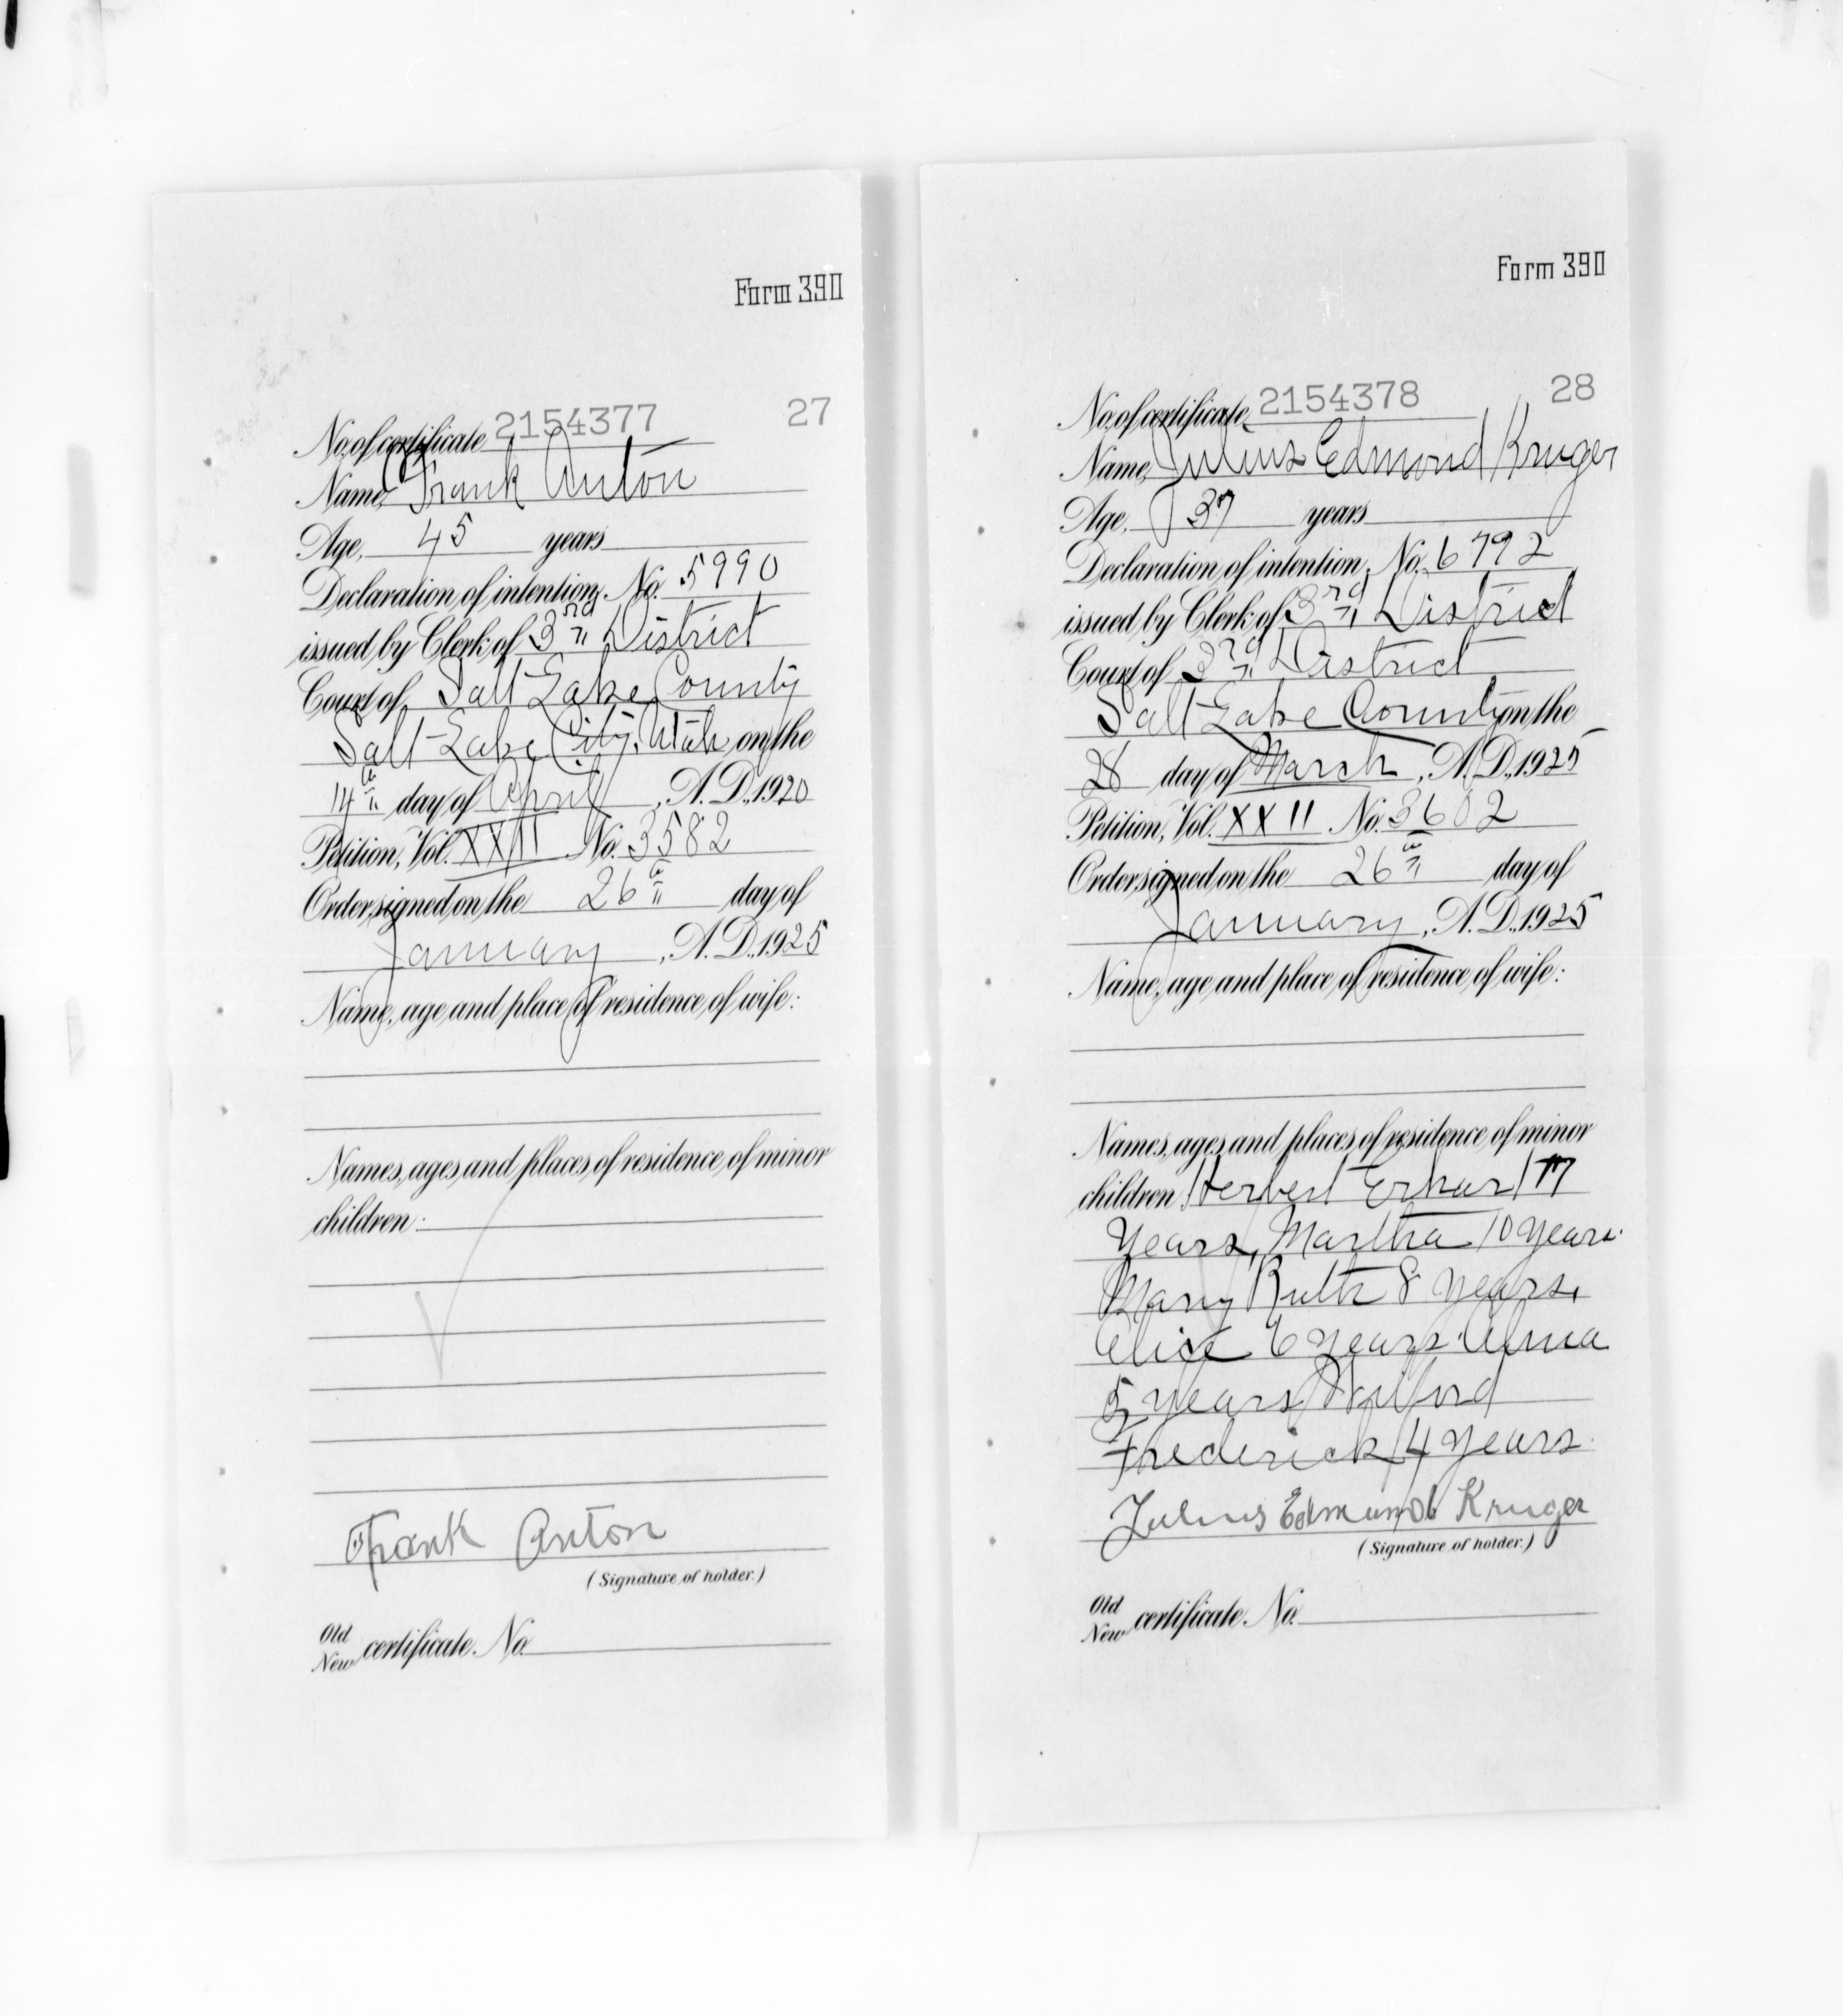 Form 390
No. of certificate 2154377 27
Name, Frank Anton
Age, 45 years
Declaration of intention, No. 5990
issued by Clerk of 3rd District
Court of Salt Lake County
Salt Lake City, Utah on the
14th day of April, A.D., 1920
Petition, Vol. XXII No. 3582
Order signed on the 26th day of
January, A.D., 1925
Name, age and place of residence of wife:
Names, ages and places of residence of minor
children:
Frank Anton
(Signature of holder.)
Old
New certificate No.
Form 390
No. of certificate, 2154378 28
Name, Julius Edmond Kruger
Age, 37 years
Declaration of intention, No. 6792
issued by Clerk of 3rd District
Court of 3rd District
Salt Lake County on the
28 day of March, A.D., 1925
Petition, Vol. XXII No. 3602
Order signed on the 26th day of
January, A.D., 1925
Name, age and place of residence of wife:
Names, ages and places of residence of minor
children: Herbert 17
Years, Martha 10 years.
Mary Ruth 8 years,
Alice 6 years.
5 years
Frederick 4 years.
Julius Edmund Kruger
(Signature of holder.)
Old
New certificate No.